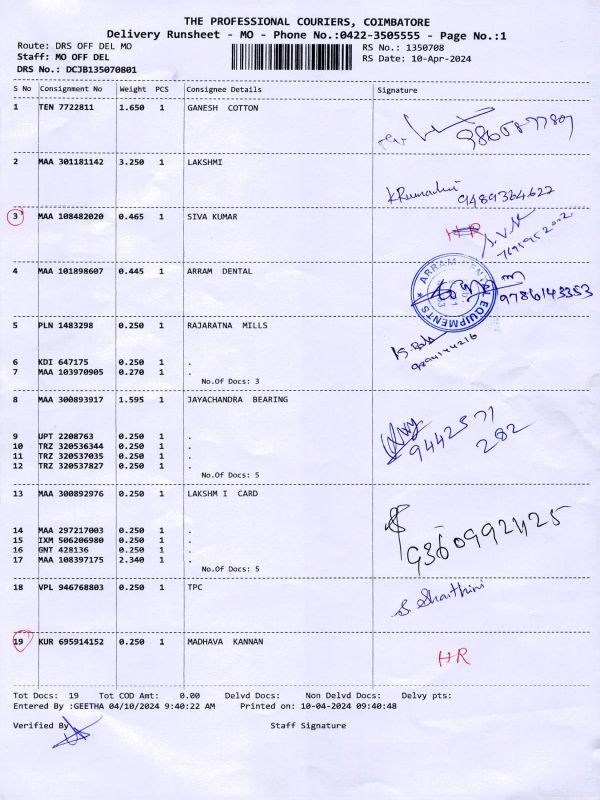 THE PROFESSIONAL COURIERS, COIMBATORE
Delivery Runsheet - MO - Phone No.:0422-3505555 - Page No.:1
Route: DRS OFF DEL MO
RS No.: 1350708
Staff: MO OFF DEL
RS Date: 10-Apr-2024
DRS No.: DCJB135070801
S No Consignment No Weight PCS Consignee Details Signature
1 TEN 7722811 1.650 1 GANESH COTTON
2 MAA 301181142 3.250 1 LAKSHMI
9489364622
3 MAA 108482020 0.465 1 SIVA KUMAR
HR
4 MAA 101898607 0.445 1 ARRAM DENTAL
ARRAM DENTAL EQUIPMENTS
9786143353
5 PLN 1483298 0.250 1 RAJARATNA MILLS
6 KDI 647175 0.250 1 .
7 MAA 103970905 0.270 1 .
No.Of Docs: 3
8 MAA 300893917 1.595 1 JAYACHANDRA BEARING
9442571
282
9 UPT 2208763 0.250 1 .
10 TRZ 320536344 0.250 1 .
11 TRZ 320537035 0.250 1 .
12 TRZ 320537827 0.250 1 .
No.Of Docs: 5
13 MAA 300892976 0.250 1 LAKSHM I CARD
14 MAA 297217003 0.250 1 .
15 IXM 506206980 0.250 1 .
16 GNT 428136 0.250 1 .
17 MAA 108397175 2.340 1 .
No.Of Docs: 5
18 VPL 946768803 0.250 1 TPC
19 KUR 695914152 0.250 1 MADHAVA KANNAN
HR
Tot Docs: 19 Tot COD Amt: 0.00 Delvd Docs: Non Delvd Docs: Delvy pts:
Entered By :GEETHA 04/10/2024 9:40:22 AM Printed on: 10-04-2024 09:40:48
Verified By Staff Signature